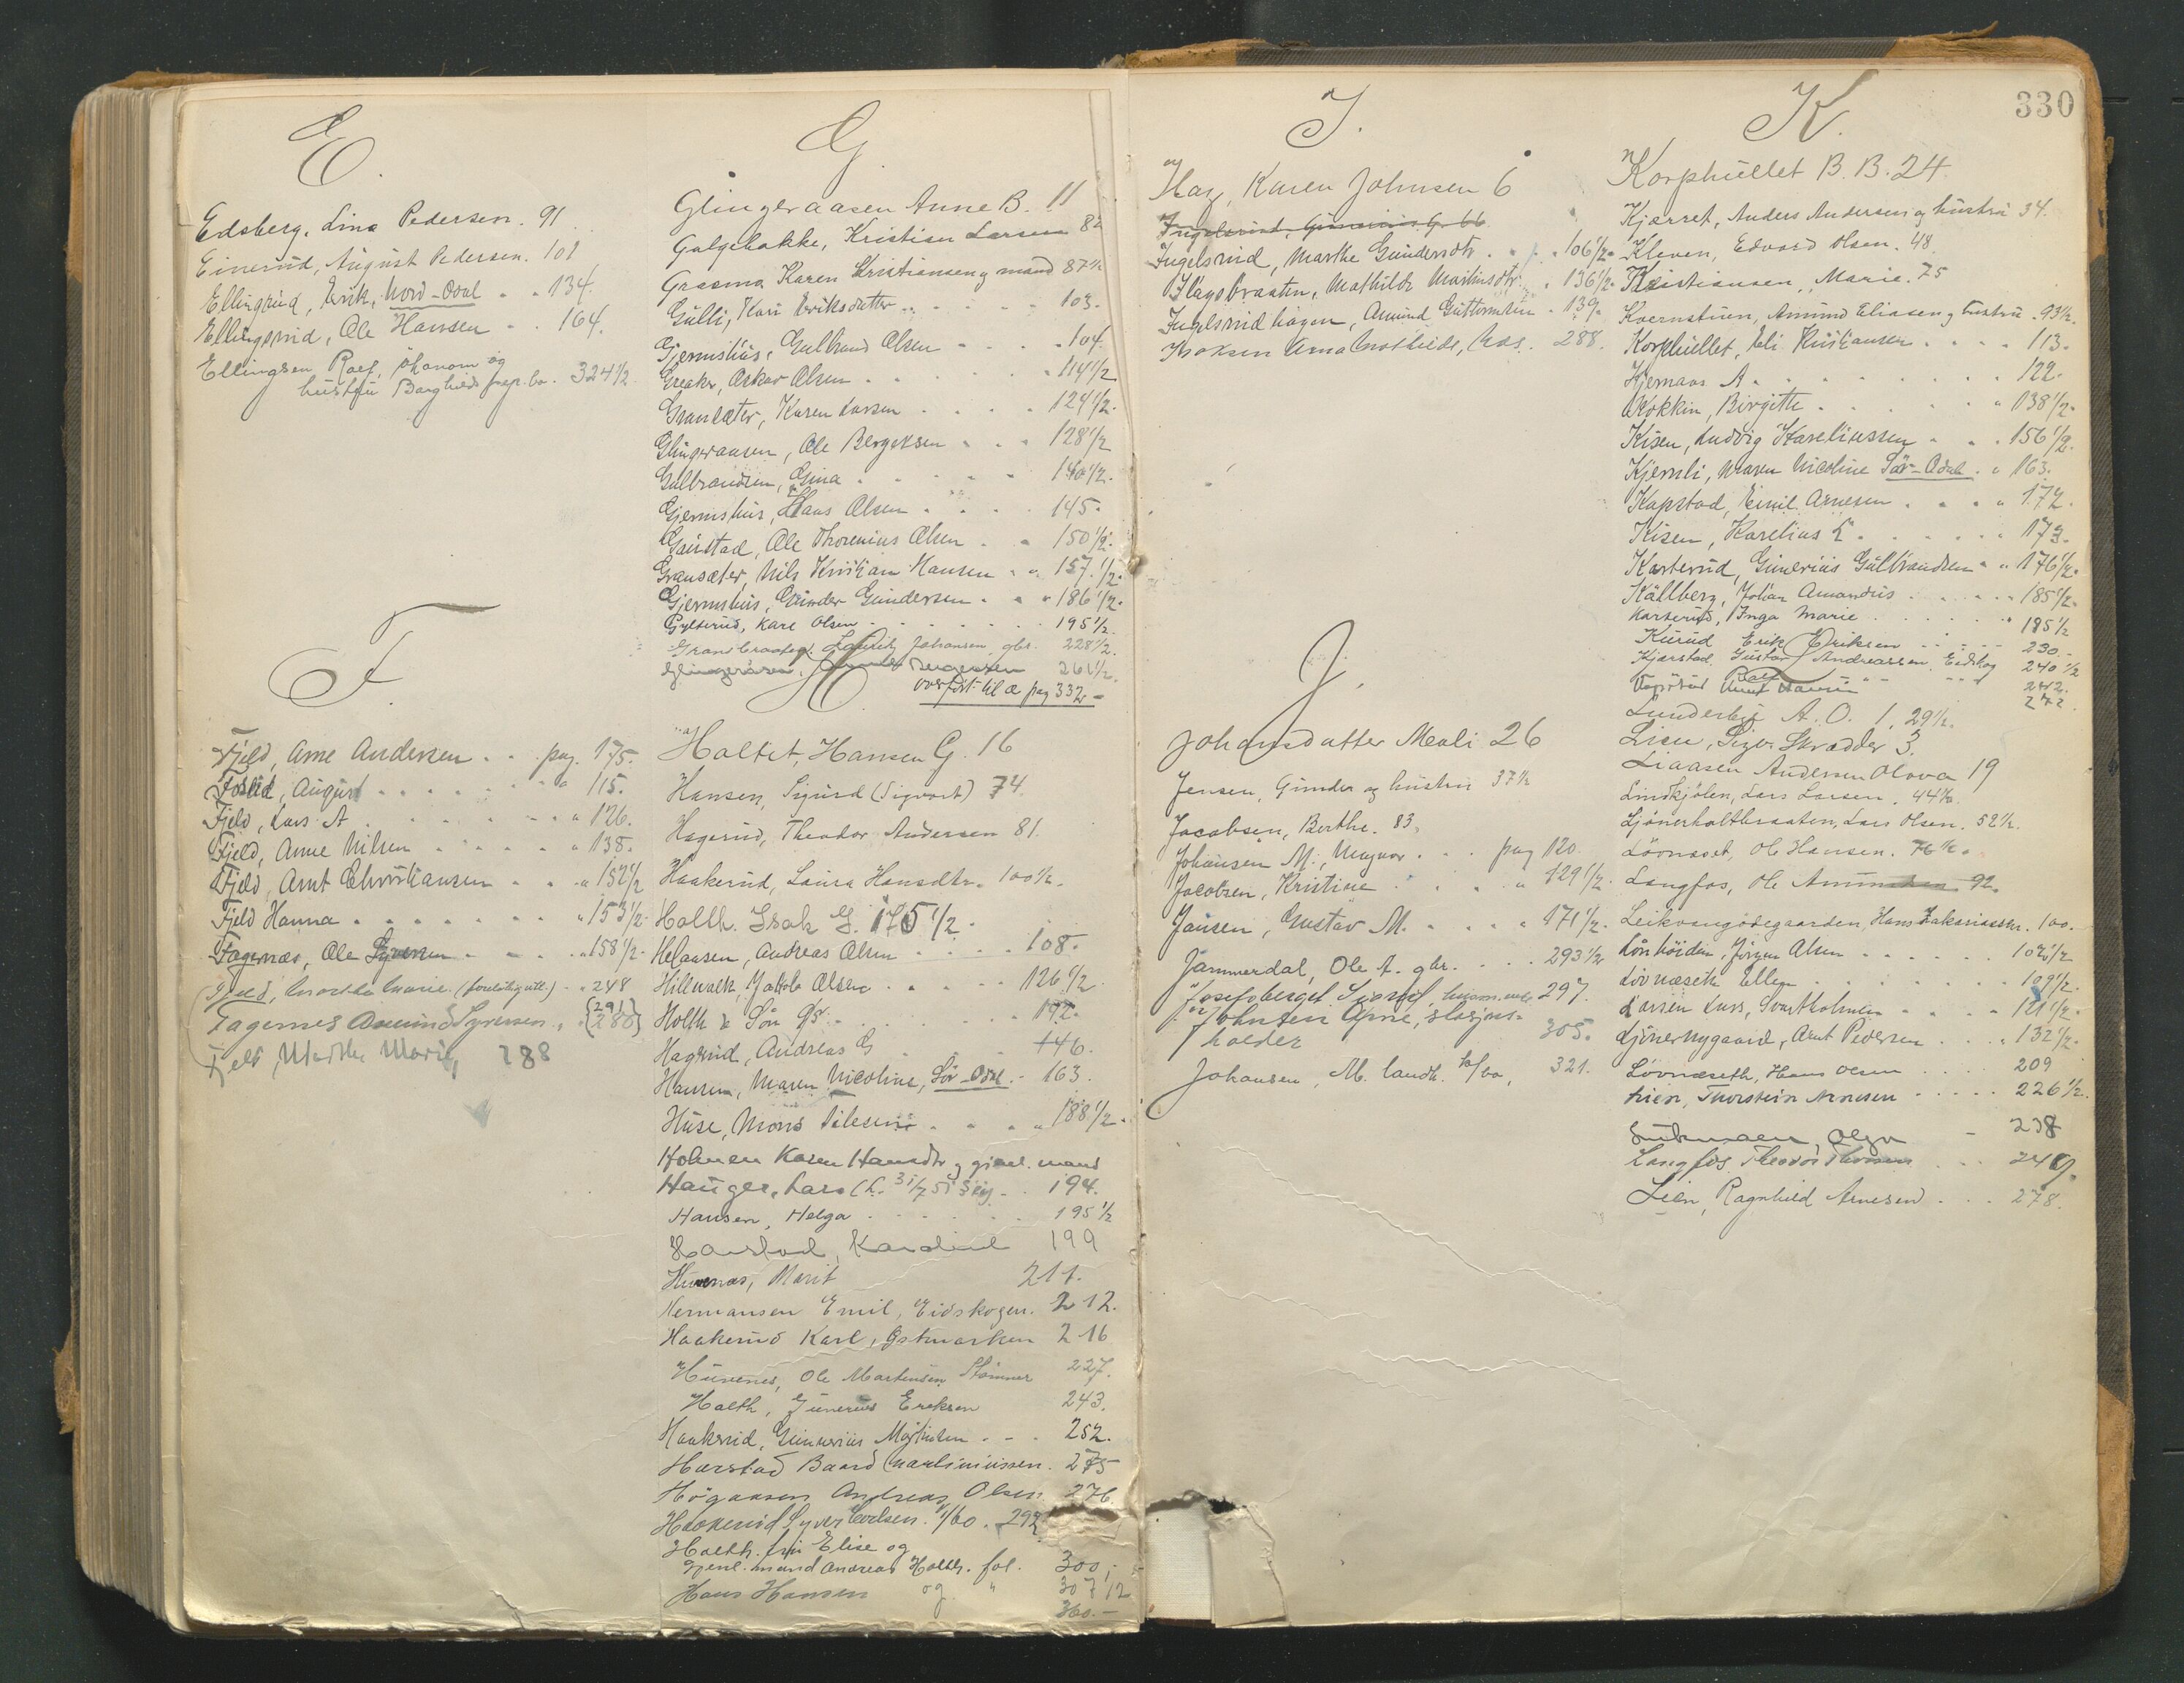 E.
Edsberg, Lina Pedersen. 91
Einerud, August Pedersen. 101
Ellingrud, Erik, Nord-Odal " " 134.
Ellingsrud, Ole Hansen " . 164.
Ellingsen Rolf, økonom og
hustru Borghild, 324 1/2
F.
Fjeld, Arne Andersen . . pag. 175.
Foslid, August . . . . " 115.
Fjeld, Lars A . . . . " 126.
Fjeld, Anne Nilsen . . . . " 138.
Fjeld, Arnt Christiansen . . " 152 1/2
Fjeld Hanna . . . . . " 153 1/2
Fagernæs, Ole Syversen . . " 158 1/2
Fjeld, Marthe Marie. (foreløbig utl.) - 248
Fagernes Amund Syversen, {291 280}
Fjeld, Marthe Marie, 288
G.
Glingeraasen Anne B. 11
Galgebakke, Kristian Larsen 82
Grasmo Karen Kristiansen og mand 87 1/2
Gulli, Kari Eriksdatter . . . . 103.
Gjermshus, Gulbrand Olsen . . . . 104
Greaker, Oskar Olsen . . . . 114 1/2
Gransæter, Karen Larsen . . . . 124 1/2.
Glingeraasen, Ole Bergersen . . . 128 1/2
Gulbrandsen, Gina . . . . 140 1/2.
Gjermshus, Hans Olsen . . . . 145.
Gaustad, Ole Thorenius Olsen . . 150 1/2.
Gransæter, Nils Kristian Hansen . . 157 1/2.
Gjermshus, Gunder Gundersen . . " 186 1/2.
Gylterud, Karl Olsen . . . . 195 1/2.
Granbraaten, Lauritz Johansen, gbr. 228 1/2.
Glingeråsen, Bergersen 261 1/2.
overført til Æ pag 332. -
H.
Holtet, Hansen G. 16
Hansen, Sigurd (Sigvart) 74.
Hagerud, Theodor Andersen 81.
Haakerud, Laura Hansdtr. 100 1/2.
Holth. Isak G. 175 1/2.
Helaasen, Andreas Olsen . . . . 108.
Hillmark, Jakob Olsen . . . . 126 1/2
Holth & Søn . . . . 192.
Hagerud, Andreas G . . . 146.
Hansen, Maren Nicoline, Sør-Odal - 163.
Huse, Mons . . " 188 1/2.
Holmen Karen Hansdtr og gjenl. mand
Hauger, Lars 194.
Hansen, Helga . . . . . 195 1/2
Harstad, Karoline 199
Huvenæs, Marit 211.
Hermansen Emil, Eidskogen. 212.
Haakerud Karl, Østmarken 216
Huvenes, Ole Martinsen Strømner 227.
Holth, Gunerius Eriksen 243.
Haakerud, Gunerius Martinsen . - . 252.
Harstad Baard Marliniussen. 275
Högaasen Andreas Olsen 276.
Haakerud Syver 1/60. 292
Holth. fru Elise og
gjenl. mand Andreas Holth. fol. 300,-
Hans Hansen og " 307 1/2
360.-
I.
Hag, Karen Johnsen 6
Ingelsrud, Gunerius G. 66
Ingelsrud, Marthe Gundersdtr . . . 106 1/2.
Ilagsbraaten, Mathilde Martinsdtr. . 136 1/2.
Ingelsrudhagen, Amund Guttormsen . 139.
Isaksen Anna Mathilde, 288.
J.
Johansdatter Meali 26
Jensen, Gunder og hustru 37 1/2
Jacobsen, Berthe. 83.
Johansen M., Magnor . . . pag 120
Jacobsen, Kristine . . . " 129 1/2.
Jansen, Gustav M. . . . . 171 1/2.
Jammerdal, Ole A. gbr. . . . 293 1/2
Josefsberget 297.
Johnsen Arne, stasjons-
holder 305.
Johansen, M. landh. 321.
K.
330
Korphullet B. B. 24
Kjærret, Anders Andersen og hustru 34.
Kleven, Edvard Olsen. 48
Kristiansen, Marie. 75
Kvernstuen, Amund Eliasen og hustru . 93 1/2.
Korphullet, Eli Kristiansen . . . . 113.
Kjernaas A . . . . . . 122.
Kokkin, Birgitte . . . . " 138 1/2.
Kisen, Ludvig Hareliussen . . . 156 1/2.
Kjernli, Maren Nicoline Sør-Odal . " 163.
Kapstad, Emil Arnesen . . . " 172.
Kisen, Karelius L . . . . 173.
Karterud, Gunerius Gulbrandsen . " 176 1/2.
Källberg, Johan Amandus . . . . 185 1/2.
Karterud, Inga Marie . . . . . 185 1/2
Kurud Erik Eriksen . . . . 230.-
Kjærstad Gustav Andreassen, Eidskog 240 1/2
242.
272.
Lunderbye A. O. 1. 29 1/2.
Lien, Sigv. Skrædder 3.
Liaasen Andersen Olava 19
Lindkjölen, Lars Larsen. 44 1/2.
Ljönerholtbraaten, Lars Olsen. 52 1/2.
Lövnæset, Ole Hansen. 76 1/2.
Langfos, Ole 92.
Leikvangødegaarden, Hans Zakariassen. 100.
Lönhöiden, Jörgen Olsen . . . . 102 1/2
Lövnæseth Ellen . . . . . 109 1/2.
Larsen Lars, Svartholmen . . . . 121 1/2.
Ljönernygaard, Arnt Pedersen . . . 132 1/2.
Lövnæseth, Hans Olsen . . . . 209
Lien, Thorstein Arnesen . . . . . 226 1/2.
Olga - 238
Langfos Theodor Thoresen . . . 249.
Lien, Ragnhild Arnesen . . . 278.